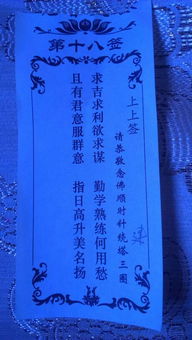 第十八签
上上签
请恭敬念佛顺时针绕塔三圈
求吉求利欲求谋 勤学熟练何用愁
且有君意服群意 指日高升美名扬